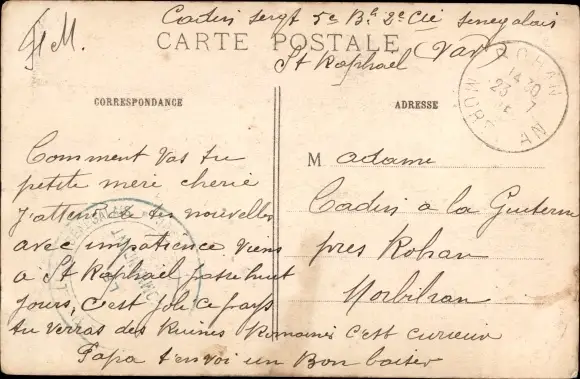 Cadin sergt 5e Bn 2e Cie senegalais
F M.
CARTE POSTALE
St Raphael (Var)
CORRESPONDANCE
ADRESSE
Comment Vas tu
petite mère cherie
J'attens de tes nouvelles
avec impatience. Viens
a St Raphael passe huit
jours, C'est joli ce pays
tu verras des Ruines Romaines c'est curieux
Papa t'envoi un Bon baiser
M adame
Cadin a la
pres Rohan
Morbihan
ROHAN
14 30
23 7
MORBIHAN